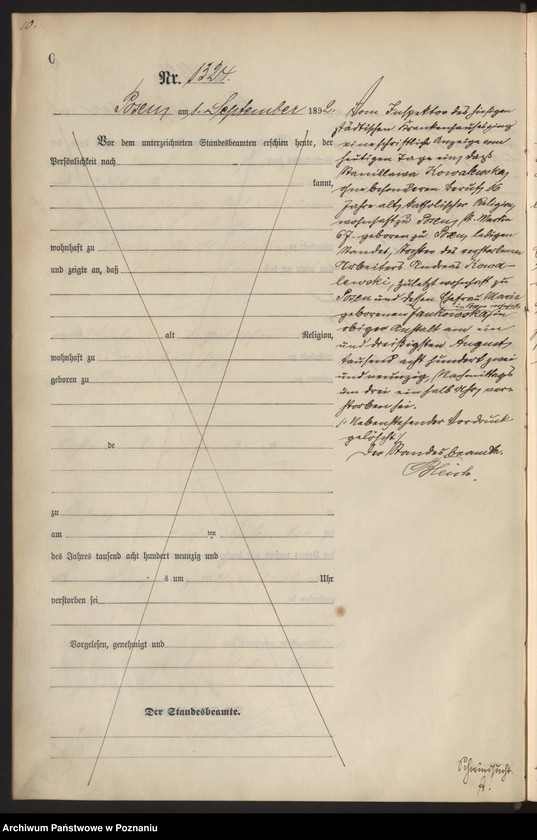 10.
C
Nr. 1324.
Posen am 1. September 1892.
Vor dem unterzeichneten Standesbeamten erschien heute, der
Persönlichkeit nach
kannt,
wohnhaft zu
und zeigte an, daß
alt Religion,
wohnhaft zu
geboren zu
de
zu
am ten
des Jahres tausend acht hundert neunzig und
s um Uhr
verstorben sei
Vorgelesen, genehmigt und
Der Standesbeamte.
Vom Inspektor des hiesigen
städtischen Krankenhauses ging
eine schriftliche Anzeige vom
heutigen Tage ein, daß
Stanislawa Kowalewska,
ohne besonderen Beruf, 16
Jahre alt, katholischer Religion,
wohnhaft zu Posen, St. Martin
67, geboren zu Posen, ledigen
Standes, Tochter des verstorbenen
Arbeiters Andreas Kowa-
lewski, zuletzt wohnhaft zu
Posen und dessen Ehefrau Maria
geborenen Jankowska, in
obiger Anstalt am ein
und dreißigsten August
tausend acht hundert zwei
und neunzig, Nachmittags
um drei ein halb Uhr ver-
storben sei.
Nebenstehender Vordruck
gelöscht.
Der Standesbeamte.
Schwindsucht.
Archiwum Państwowe w Poznaniu